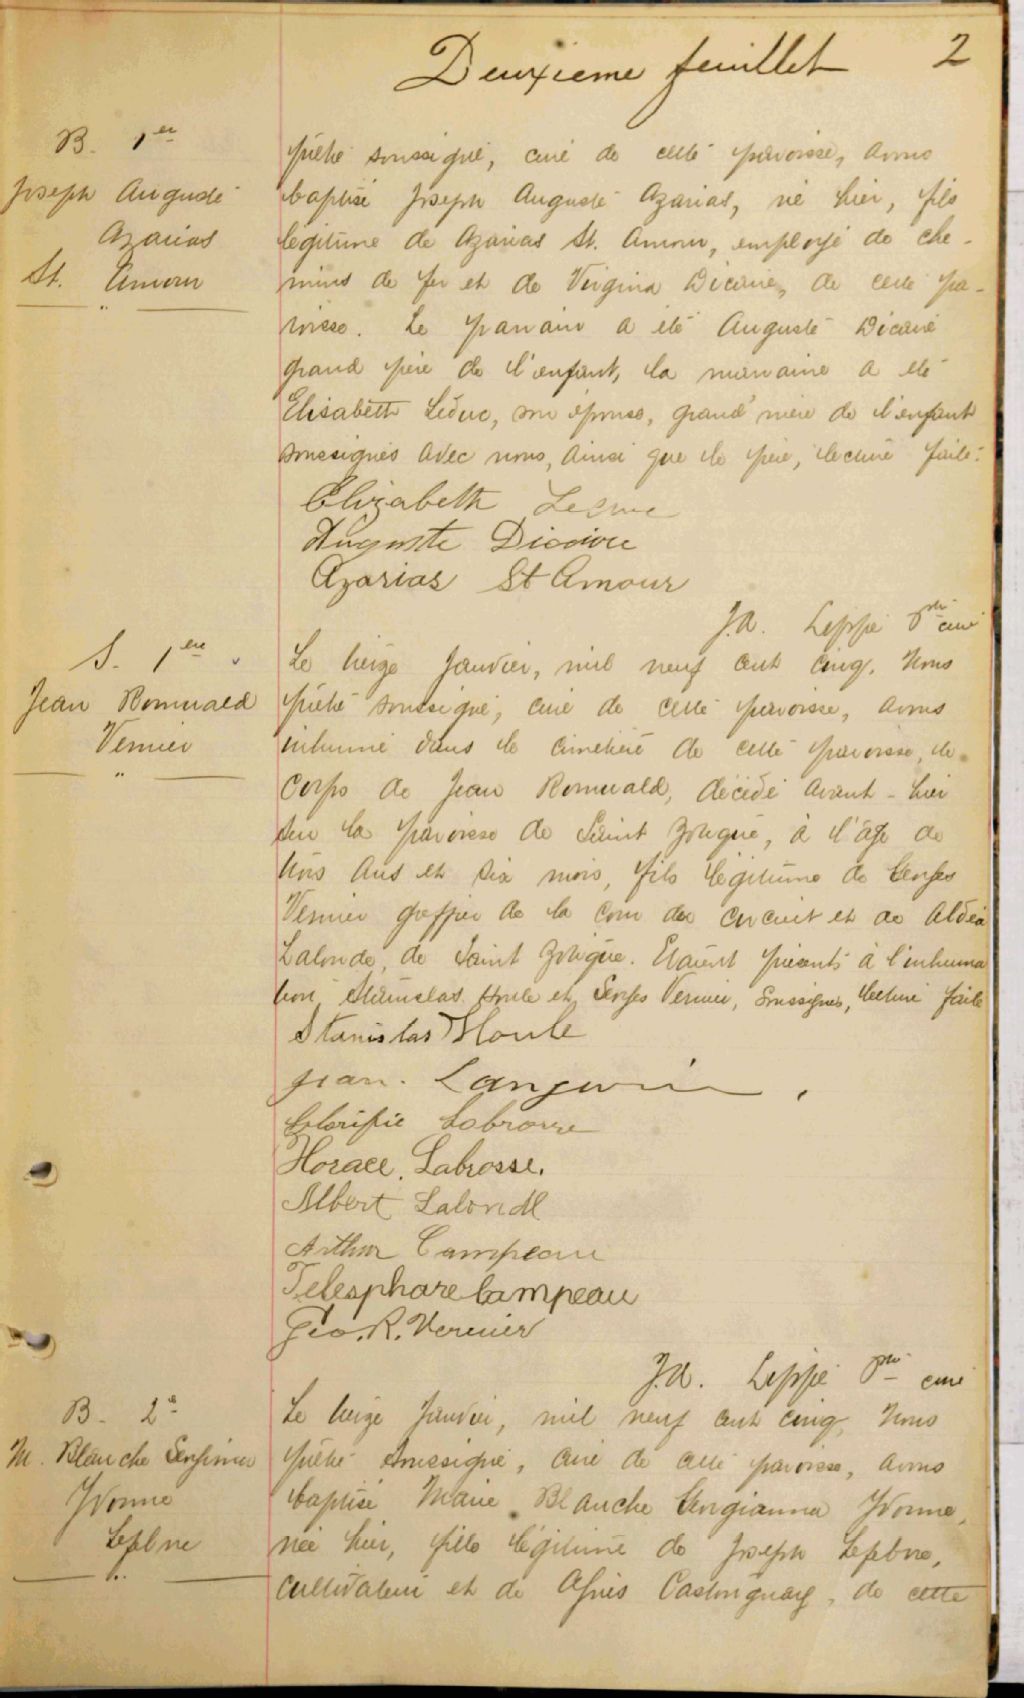 Deuxieme feuillet 2
B. 1er
Joseph Auguste
Azarias
St. Amour
prêtre soussigné, curé de cette paroisse, avons
baptisé Joseph Auguste Azarias, né hier, fils
légitime de Azarias St. Amour, employé de che-
mins de fer et de Virginia Dicaire, de cette pa-
roisse. Le parrain a été Auguste Dicaire
grand père de l'enfant, la marraine a été
Elisabeth Leduc, son épouse, grand'mère de l'enfant
soussignés avec nous, ainsi que le père, lecture faite.
Elizabeth Leduc
Auguste Dicaire
Azarias St Amour
J.A. Lippé Ptre curé
S. 1ere
Jean Romuald
Vernier
Le treize Janvier, mil neuf cent cinq, Nous
prêtre soussigné, curé de cette paroisse, avons
inhumé dans le cimetière de cette paroisse, le
corps de Jean Romuald, décédé avant-hier
en la paroisse de Saint Zotique, à l'âge de
trois ans et six mois, fils légitime de Georges
Vernier greffier de la cour de circuit et de Aldéa
Lalonde, de Saint Zotique. Etaient présents à l'inhuma
tion Stanislas Houle et Georges Vernier, soussignés, lecture faite
Stanislas Houle
Jean. Langevin
Glorifie Labrosse
Horace. Labrosse.
Albert Lalonde
Arthur Campeau
Telesphore Campeau
Geo. R. Vernier
J.A. Lippé Ptre curé
B. 2e
M. Blanche Georgianna
Yvonne
Lefebvre
Le treize Janvier, mil neuf cent cinq, Nous
prêtre soussigné, curé de cette paroisse, avons
baptisé Marie Blanche Georgianna Yvonne,
née hier, fille légitime de Joseph Lefebvre,
cultivateur et de Agnès Castonguay, de cette